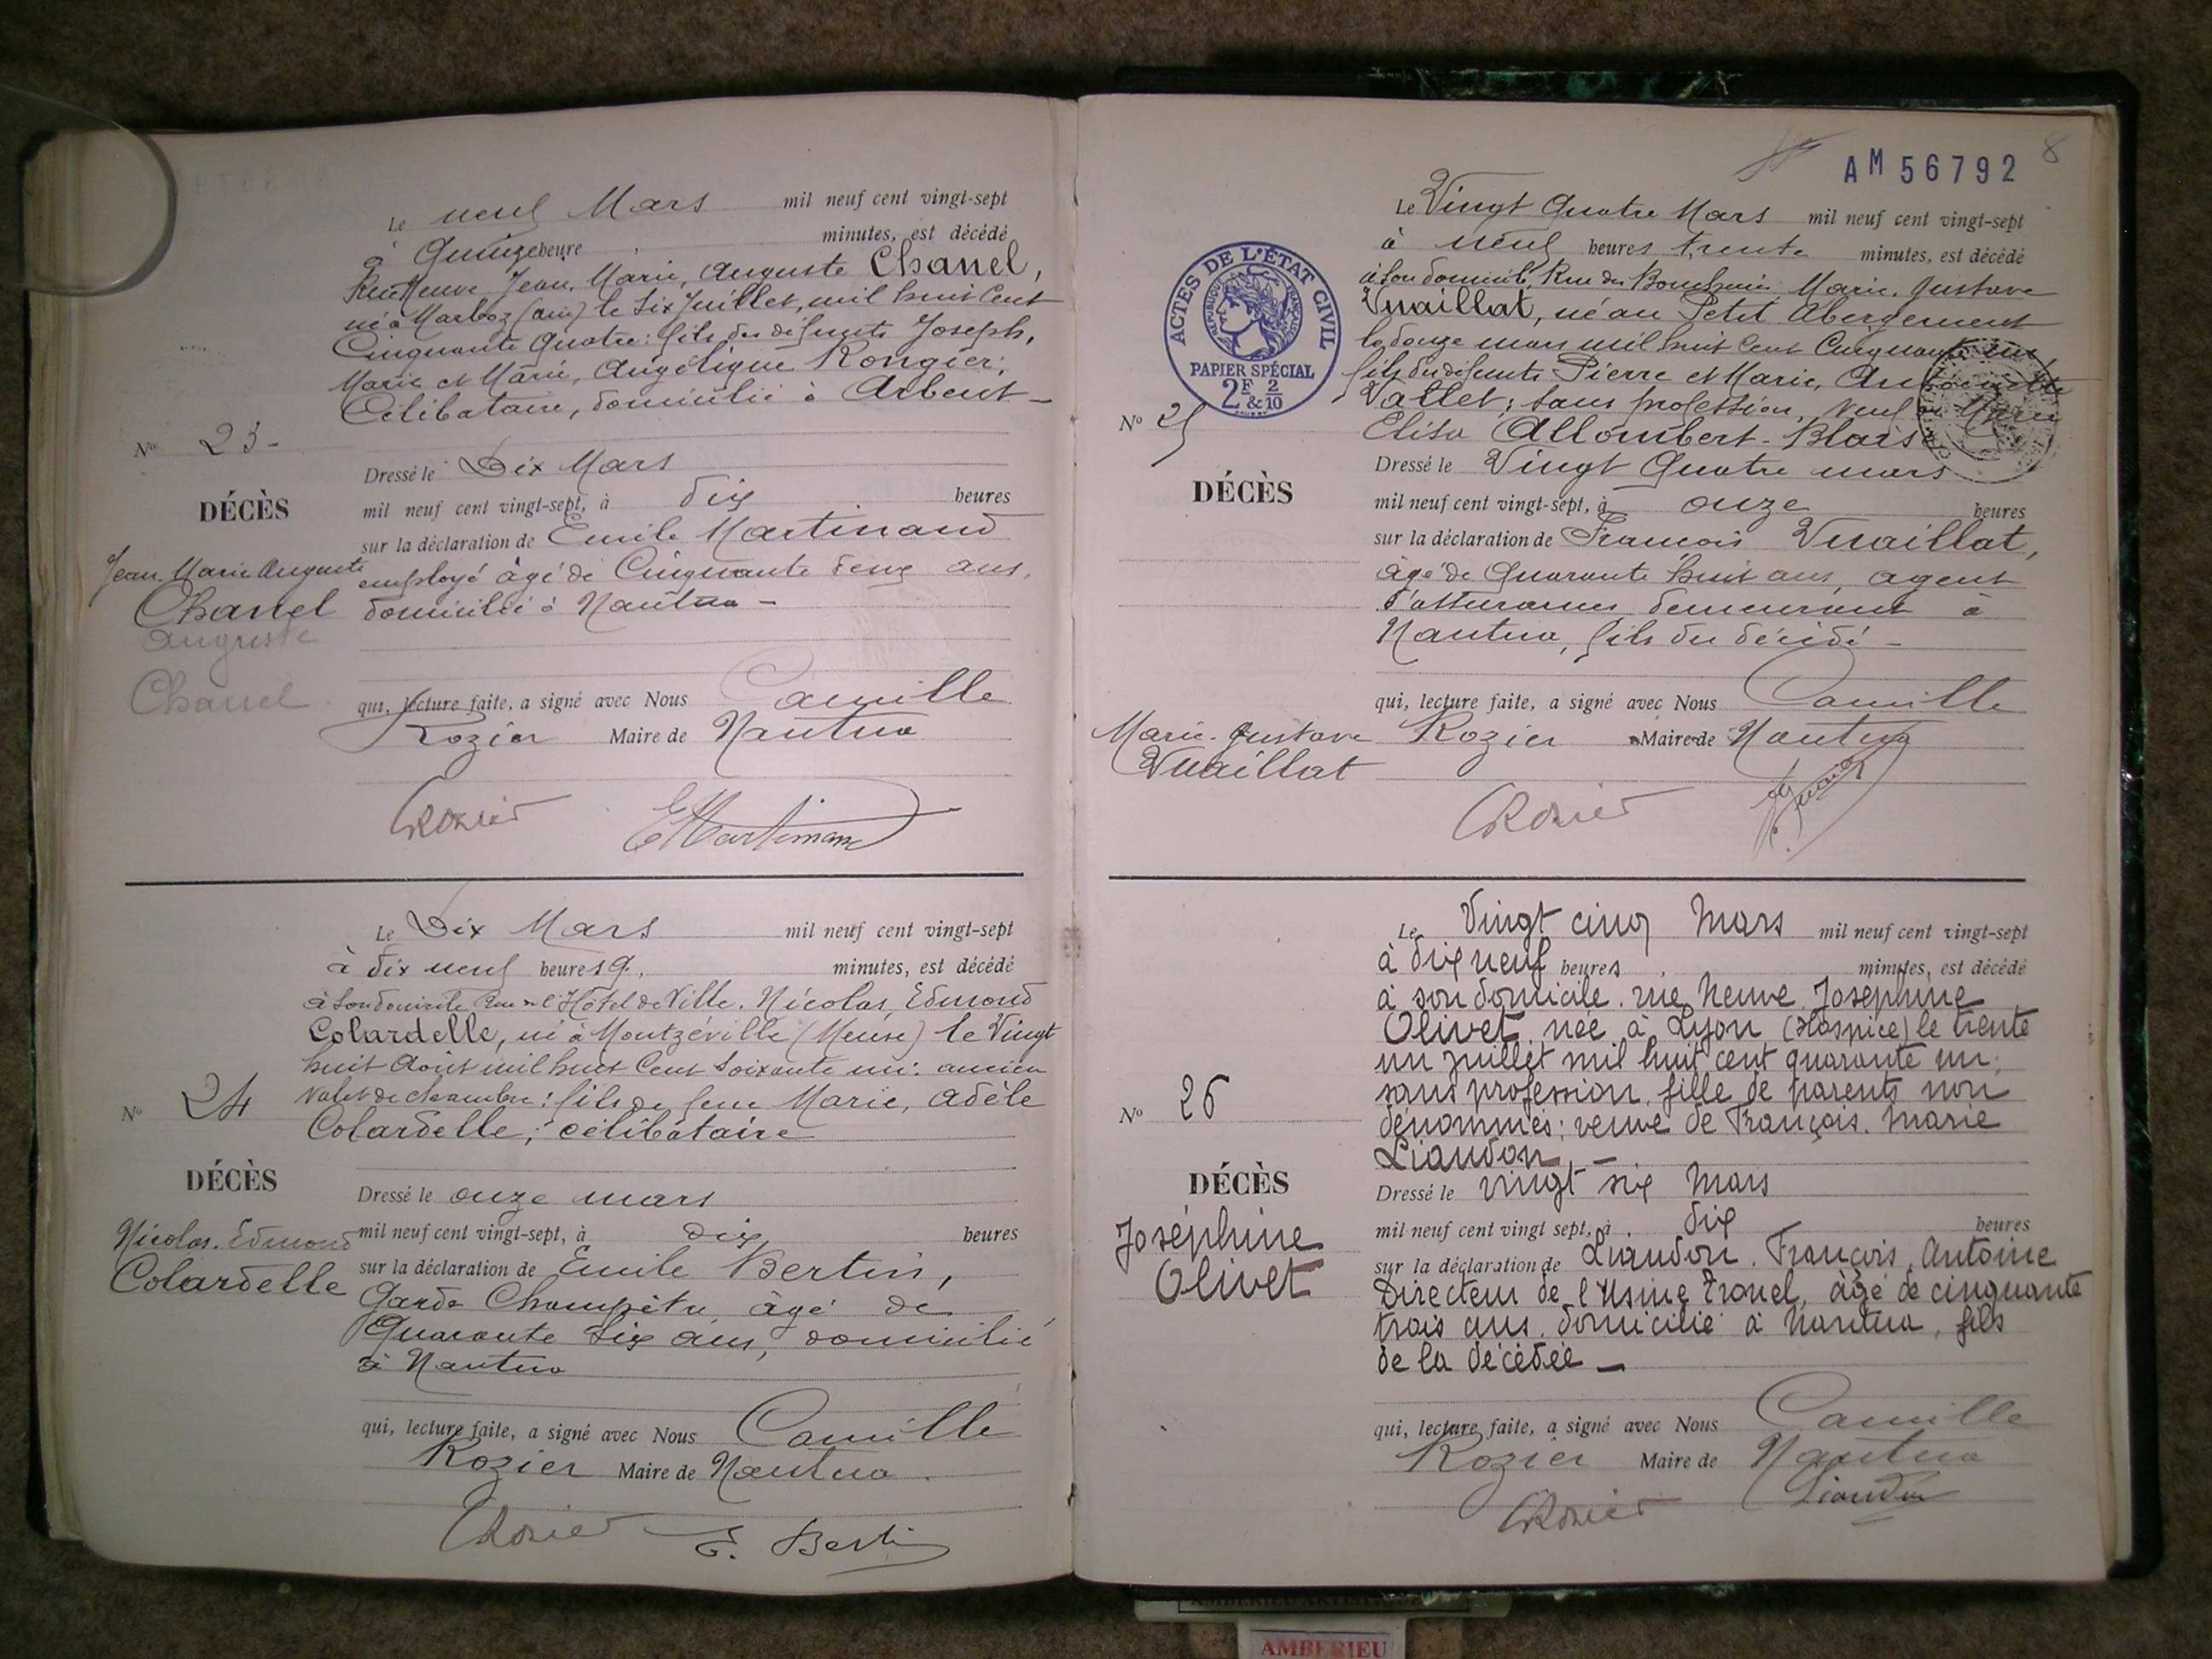 Le neuf Mars mil neuf cent vingt-sept
à Quinze heure minutes, est décédé
Rue Neuve Jean, Marie, Auguste Chanel,
né à Marboz (ain) le Six Juillet, mil huit Cent
Cinquante Quatre: fils des défunts Joseph,
Marie et Marie, Angélique Rongier;
Célibataire, domicilié à Arbent -
No 23 -
DÉCÈS
Jean Marie Auguste
Chanel
Auguste
Chanel
Dressé le Dix Mars
mil neuf cent vingt-sept, à dix heures
sur la déclaration de Emile Martinand
employé âgé de Cinquante deux ans,
domicilié à Nantua -
qui, lecture faite, a signé avec Nous Camille
Rozier Maire de Nantua
CRozier EMartinand
Le Dix Mars mil neuf cent vingt-sept
à dix neuf heures minutes, est décédé
à son domicile Rue de l'Hôtel de Ville. Nicolas, Edmond
Colardelle, né à Montzéville (Meuse) le Vingt
huit Août mil huit Cent Soixante un: ancien
Valet de chambre: fils de feue Marie, Adèle
Colardelle; célibataire
No 24
DÉCÈS
Nicolas. Edmond
Colardelle
Dressé le onze mars
mil neuf cent vingt-sept, à dix heures
sur la déclaration de Emile Bertin,
Garde Champêtre, âgé de
Quarante Six ans, domicilié
à Nantua
qui, lecture faite, a signé avec Nous Camille
Rozier Maire de Nantua.
CRozier E. Bertin
AM 56792 8
Le Vingt Quatre Mars mil neuf cent vingt-sept
à neuf heures trente minutes, est décédé
à son domicile, Rue du Marie, Gustave
Vuaillat, né au Petit Abergement
le douze mars mil huit Cent Cinquante un,
fils des défunts Pierre et Marie, Antoinette
Vallet; sans profession, Veuf de Marie
Elisa Allombert-Blaise
ACTES DE L'ÉTAT CIVIL
RÉPUBLIQUE FRANÇAISE
PAPIER SPÉCIAL
2F & 2/10
No 25
DÉCÈS
Marie-Gustave
Vuaillat
Dressé le Vingt Quatre mars
mil neuf cent vingt-sept, à onze heures
sur la déclaration de François Vuaillat,
âgé de Quarante huit ans, agent
d'assurances demeurant à
Nantua, fils du décédé -
qui, lecture faite, a signé avec Nous Camille
Rozier Maire de Nantua
CRozier
Le Vingt cinq Mars mil neuf cent vingt-sept
à dix neuf heures minutes, est décédé
à son domicile. rue Neuve. Joséphine
Olivet, née à Lyon (Hospice) le trente
un juillet mil huit cent quarante un;
sans profession. fille de parents non
dénommés; veuve de François. Marie
Liaudon. -
No 26
DÉCÈS
Joséphine
Olivet
Dressé le vingt six Mars
mil neuf cent vingt sept, à dix heures
sur la déclaration de Liaudon. François, Antoine
Directeur de l'Usine Tronel, âgé de cinquante
trois ans. domicilié à Nantua, fils
de la décédée -
qui, lecture faite, a signé avec Nous Camille
Rozier Maire de Nantua
CRozier Liaudon
AMBERIEU